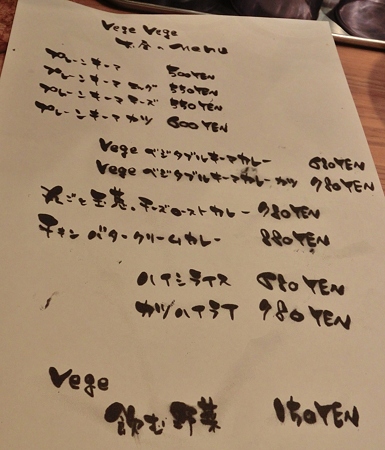 Vege Vege
本日のmenu
プレーンキーマ 500YEN
プレーンキーマ エッグ 550YEN
プレーンキーマ チーズ 550YEN
プレーンキーマ カツ 600YEN
Vege ベジタブルキーマカレー 680YEN
Vege ベジタブルキーマカレーカツ 780YEN
丸ごと玉葱・チーズローストカレー 980YEN
チキン バタークリームカレー 880YEN
ハイシライス 680YEN
カツハイライ 980YEN
Vege
飲む野菜 150YEN